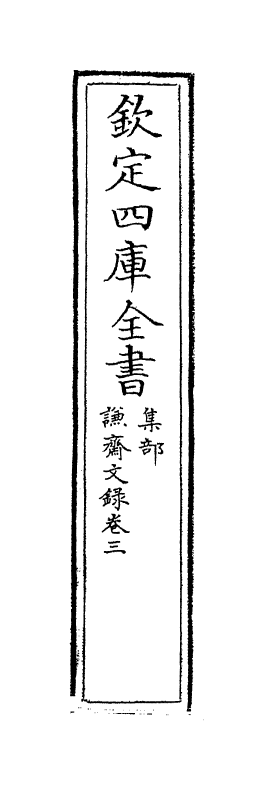 欽定四庫全書
集部
謙齋文録卷三